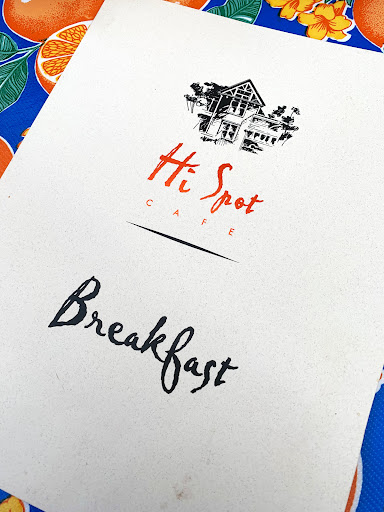 Hi Spot
CAFE
Breakfast